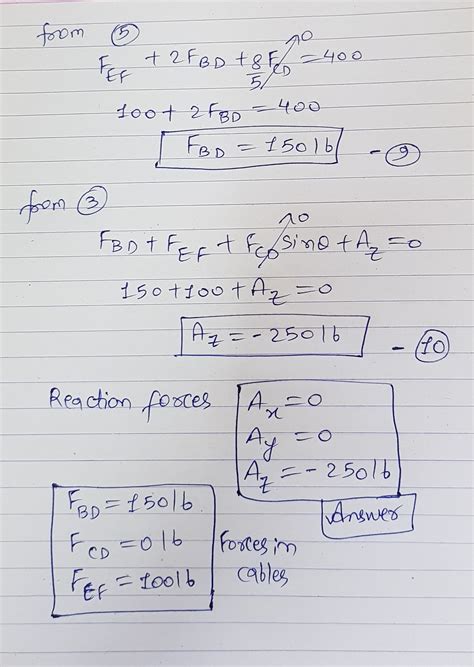 from ⑤
F_EF + 2F_BD + 8/5 F_CD →0 = 400
100 + 2F_BD = 400
F_BD = 150 lb - ⑨
from ③
F_BD + F_EF + F_CD →0 sinθ + A_z = 0
150 + 100 + A_z = 0
A_z = -250 lb - ⑩
Reaction forces
A_x = 0
A_y = 0
A_z = -250 lb
Answer
F_BD = 150 lb
F_CD = 0 lb
F_EF = 100 lb
Forces in
cables